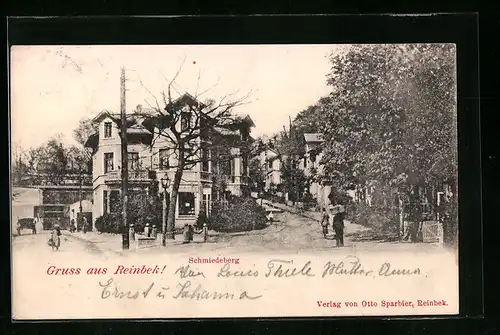 Schmiedeberg
Gruss aus Reinbek! Von Louis Thiele Mutter, Anna
Ernst u Johanna
Verlag von Otto Sparbier, Reinbek.